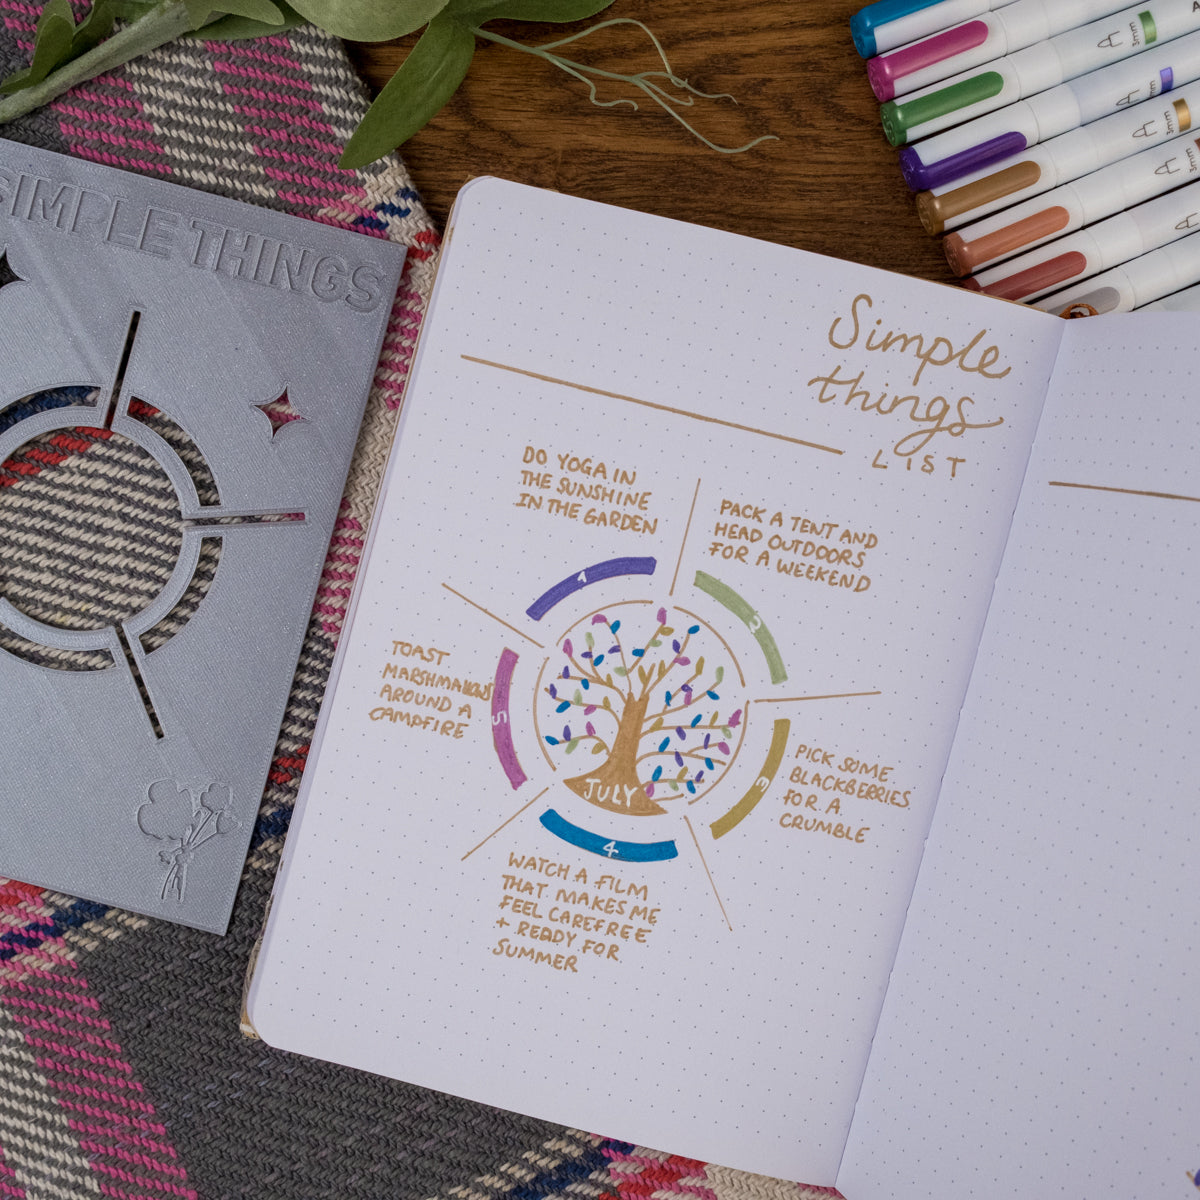 SIMPLE THINGS
3mm
3mm
3mm
Simple
things
LIST
DO YOGA IN
THE SUNSHINE
IN THE GARDEN
1
PACK A TENT AND
HEAD OUTDOORS
FOR A WEEKEND
2
PICK SOME
BLACKBERRIES
FOR A
CRUMBLE
3
WATCH A FILM
THAT MAKES ME
FEEL CAREFREE
+ READY FOR
SUMMER
4
TOAST
MARSHMALLOWS
AROUND A
CAMPFIRE
5
JULY